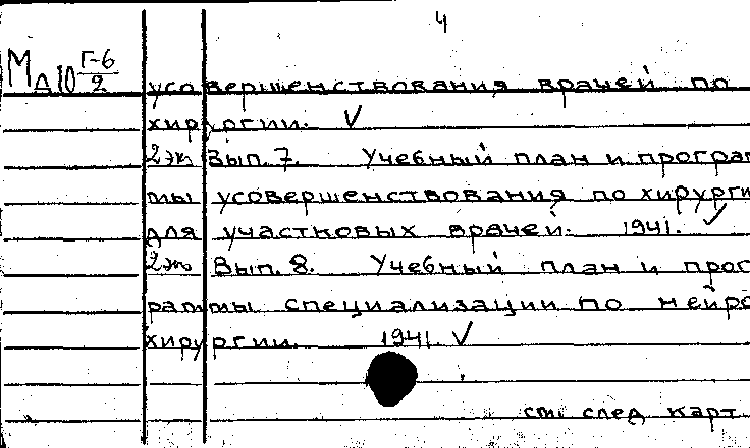 4
МД10 Г-6/2
усовершенствования врачей по
хирургии. ✓
2 эк Вып. 7. Учебный план и програм
мы усовершенствования по хирурги
для участковых врачей. 1941. ✓
2 эк Вып. 8. Учебный план и прог
раммы специализации по нейро
хирургии. 1941. ✓
см. след карт